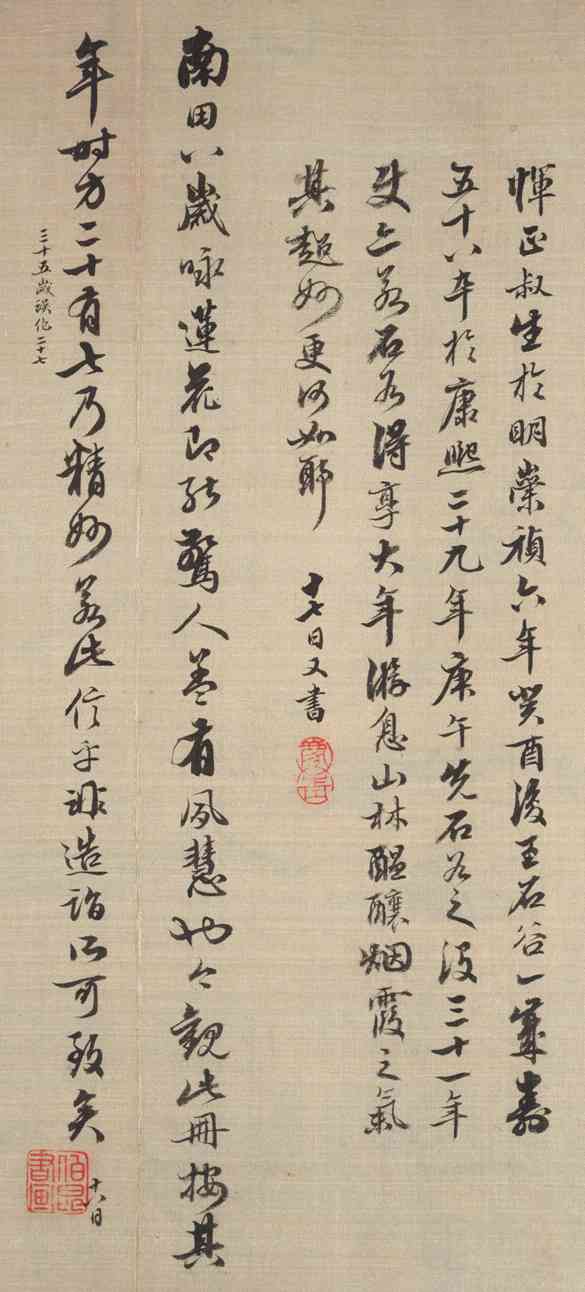 惲正叔生於明崇禎六年癸酉後王石谷一歲壽
五十八卒於康熙二十九年庚午先石谷之没三十一年
使亦若石谷得享大年游息山林醖釀烟霞之氣
其超妙更何如耶
十七日又書
南田八歲咏蓮花即能驚人蓋有夙慧也今觀此冊按其
年時方二十有七乃精妙若此信乎非造詣所可致矣
十八日
三十五歲誤作二十七